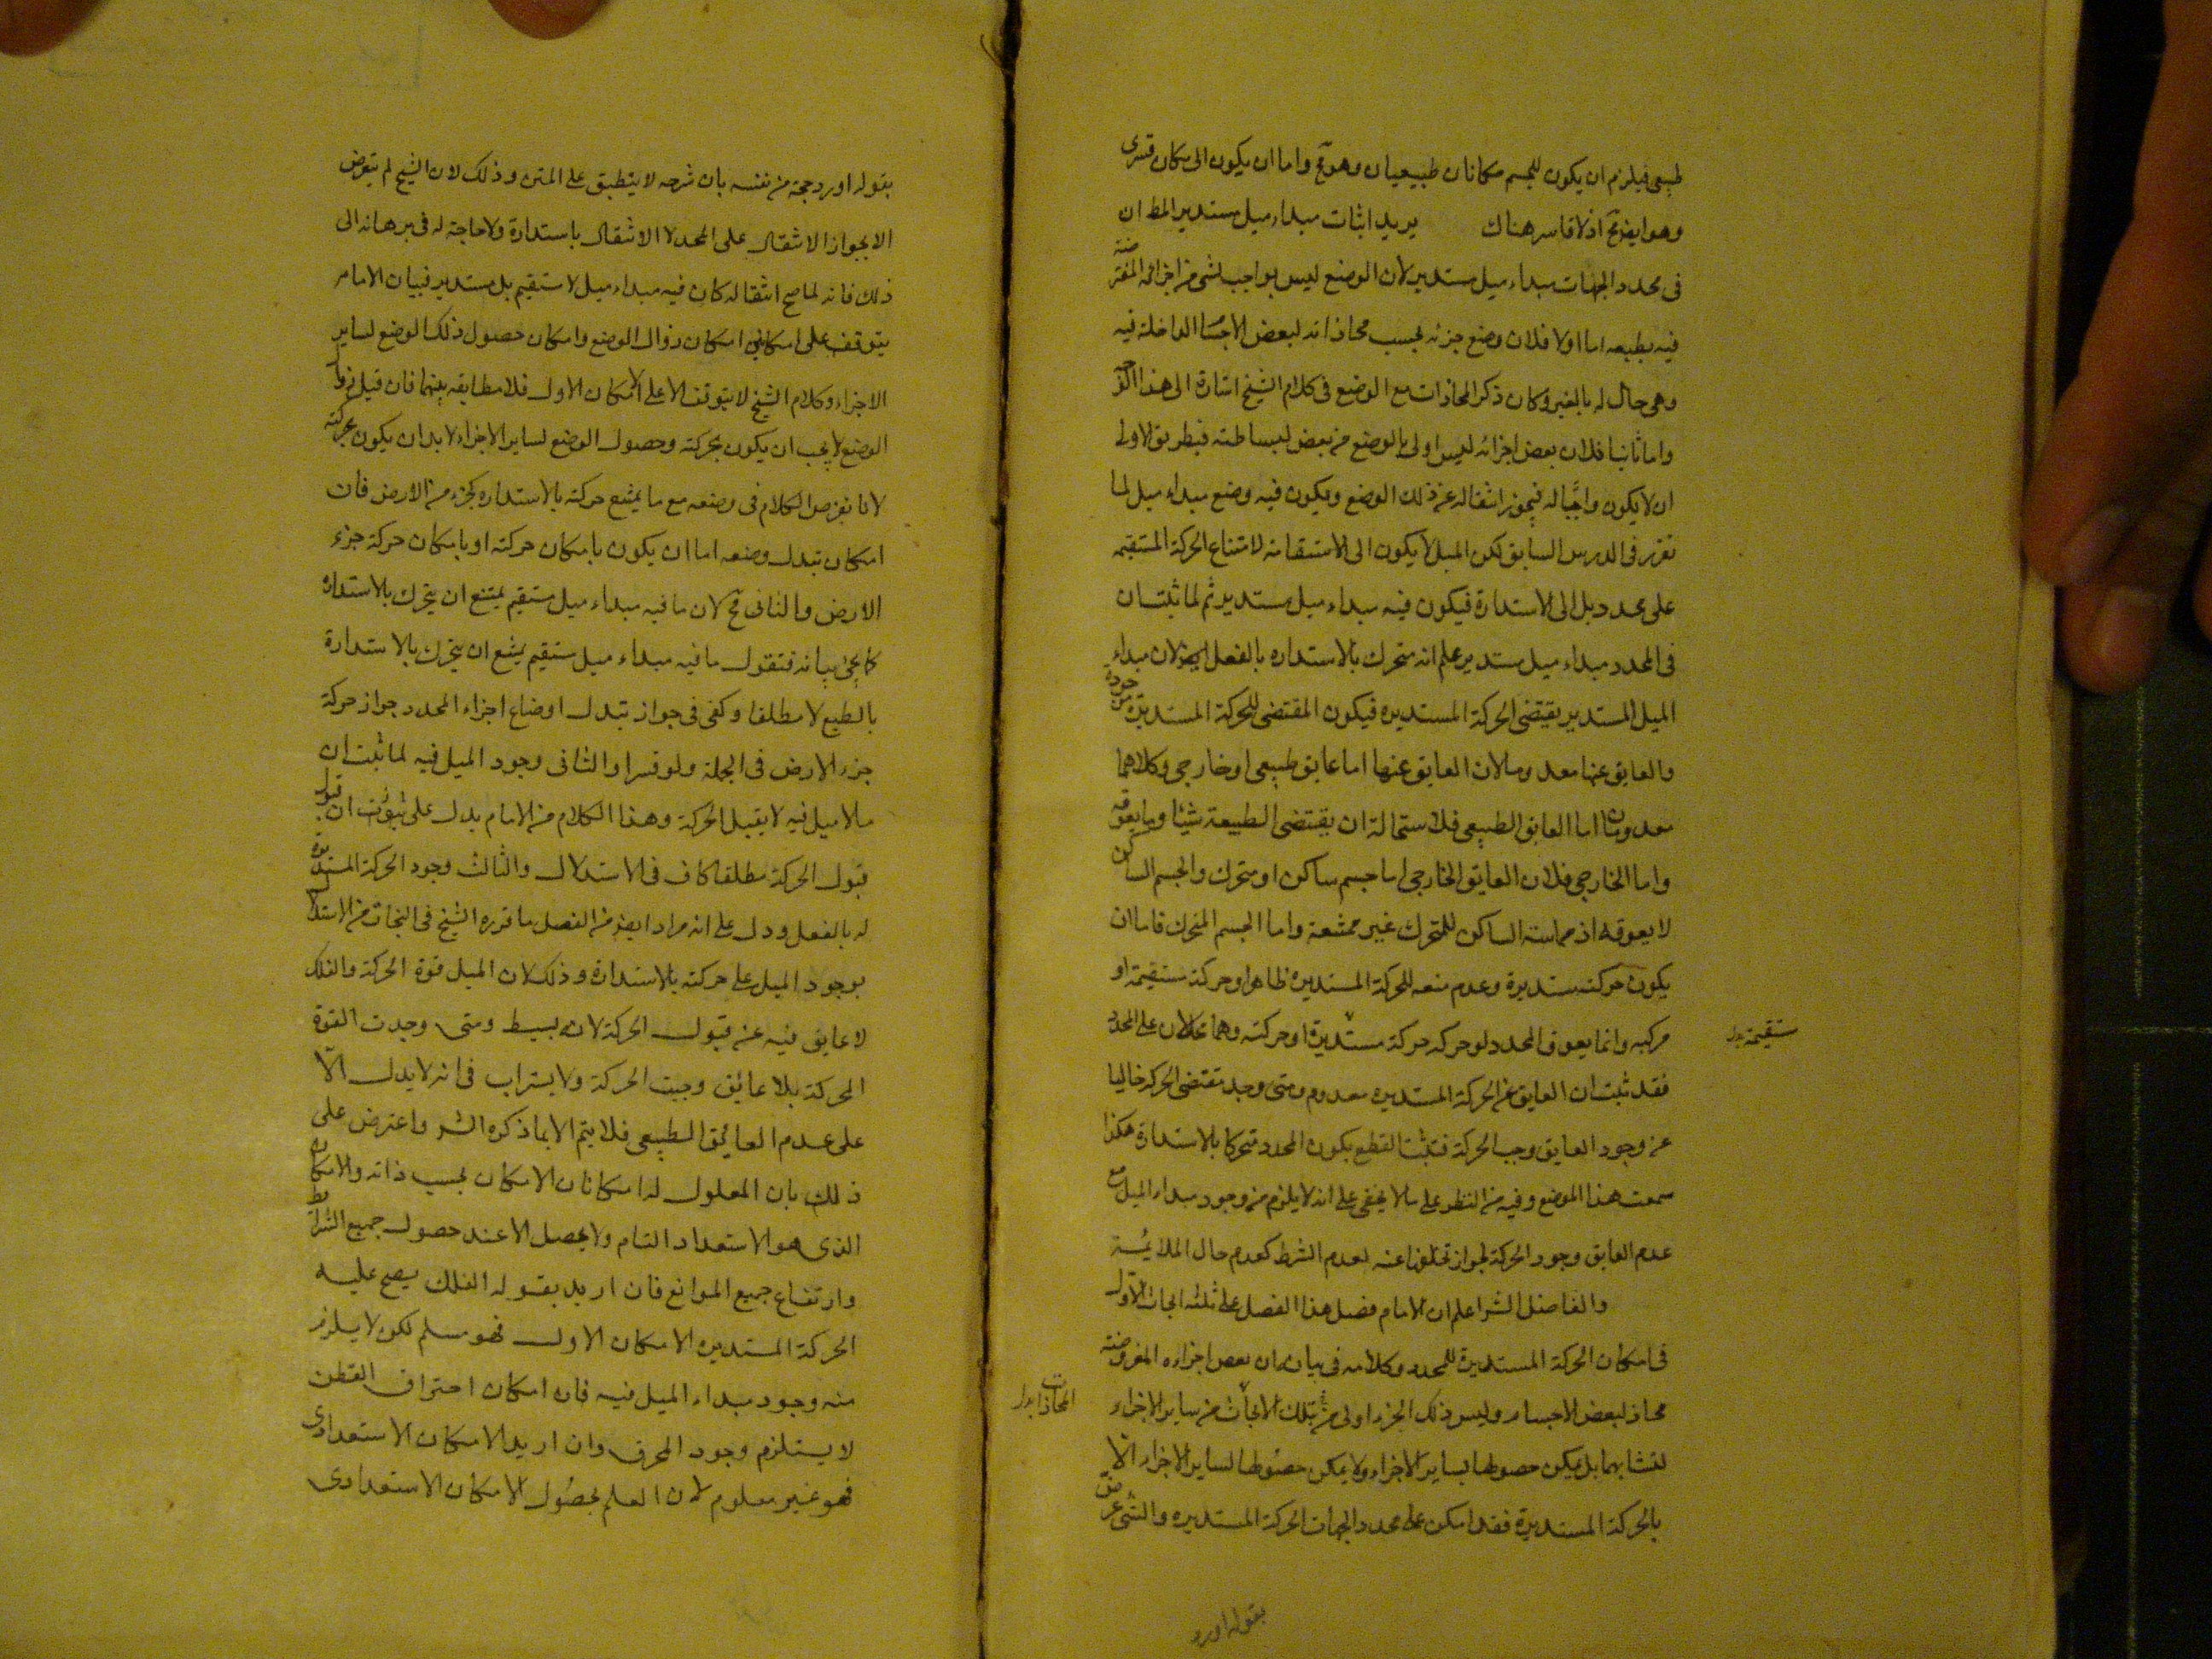 طبيعى فيلزم ان يكون للجسم مكانان طبيعيان وهو مح واما ان يكون الى مكان قسرى
وهو ايضا مح اذ لا قاسر هناك يريد اثبات مبداء ميل مستدير المط ان
فى محدد الجهات مبداء ميل مستدير لان الوضع ليس بواجب لشى من اجزائه المفترضة
فيه بطبعه اما اولا فلان وضع جزئه بحسب محاذاته لبعض الاجسام الداخلة فيه
وهى حال له بالغير وكان ذكر المحاذات مع الوضع فى كلام الشيخ اشارة الى هذا
واما ثانيا فلان بعض اجزائه ليس اولى بالوضع من بعض لبساطته فبطريق الاولى
ان لا يكون واجبا له فيجوز انتقاله عن ذلك الوضع ويكون فيه وضع مبداء ميل لما
تقرر فى الدرس السابق لكن الميل لا يكون الى الاستقامة لامتناع الحركة المستقيمه
على محدد بل الى الاستدارة فيكون فيه مبداء ميل مستدير ثم لما ثبت ان
فى المحدد مبداء ميل مستدير علم انه متحرك بالاستداره بالفعل ايضا لان مبداء
الميل المستدير يقتضى الحركة المستديره فيكون المقتضى للحركة المستديرة موجوده
والعايق عنها معدوما لان العايق عنها اما عايق طبيعى او خارجى وكلاهما
معدومان اما العايق الطبيعى فلاستحالة ان يقتضى الطبيعة شيئا وما يعوقه
واما الخارجى فلان العايق الخارجى اما جسم ساكن او متحرك والجسم الساكن
لا يعوقه اذ مماسته الساكن للمتحرك غير ممتنعة واما الجسم المتحرك فاما ان
يكون حركته مستديرة وعدم منعه للحركة المستديره ظاهر او حركة مستقيمة او
مركبه وانما يعوق المحدد لو حركه حركة مستديرة او حركته وهما محالان على المحدد
مستقيمة بدل
فقد ثبت ان العايق عن الحركة المستديره معدوم ومتى وجد مقتضى الحركه خاليا
عن وجود العايق وجب الحركة فثبت القطع بكون المحدد متحركا بالاستدارة هكذا
سمعت هذا الموضع وفيه من النظر على ما لا يخفى على انه لا يلزم من وجود مبداء الميل مع
عدم العايق وجود الحركة لجواز تخلفها عنه لعدم الشرط كعدم حال الملايمة
والفاضل الش اعلم ان الامام فصل هذا الفصل على ثلثة ابحاث الاول
فى امكان الحركة المستديرة للمحدد وكلامه فى بيان ان بعض اجزاءه المفروضة
محاذ لبعض الاجسام وليس ذلك الجزء اولى من بتلك الابحاث من ساير الاجزاء
المحاذات بدل
لتشابهها بل يمكن حصولها لساير الاجزاء ولا يمكن حصولها لساير الاجزاء الا
بالحركة المستديرة فقد امكن على محدد الجهات الحركة المستديره والشى عرض
بقوله اورد
بقوله اورد حجة من نفسه بان شرحه لا ينطبق على المتن وذلك لان الشيخ لم يتعرض
الا بجواز الانتقال على المحدد لا الانتقال باستدارة ولا حاجة له فى برهانه الى
ذلك فانه لما صح انتقاله كان فيه مبداء ميل لا مستقيم بل مستدير فبيان الامام
يتوقف على امكانى امكان زوال الوضع وامكان حصول ذلك الوضع لساير
الاجزاء وكلام الشيخ لا يتوقف الا على الامكان الاول فلا مطابقه بينهما فان قيل زوال
الوضع لا يجب ان يكون بحركته وحصول الوضع لساير الاجزاء لا بد ان يكون بحركته
لانا نفرض الكلام فى وضعه مع ما يمتنع حركته بالاستداره كجزء من الارض فان
امكان تبدل وضعه اما ان يكون بامكان حركته او بامكان حركة جزء
الارض والثانى مح لان ما فيه مبداء ميل مستقيم يمتنع ان يتحرك بالاستدارة
كما يجئ بيانه فنقول ما فيه مبداء ميل مستقيم يمتنع ان يتحرك بالاستدارة
بالطبع لا مطلقا وكفى فى جواز تبدل اوضاع اجزاء المحدد جواز حركة
جزء الارض فى الجملة ولو قسرا والثانى وجود الميل فيه لما ثبت ان
ما لا ميل فيه لا يقبل الحركة وهذا الكلام من الامام يدل على ثبوت ان قبول
قبول الحركة مطلقا كاف فى الاستدلال والثالث وجود الحركة المستديرة
له بالفعل ودل على انه مراد ايضا من الفصل ما قرره الشيخ فى النجات من الاستدلال
بوجود الميل على حركته بالاستدارة وذلك لان الميل قوة الحركة والفلك
لا عايق فيه عن قبول الحركة لانه بسيط ومتى وجدت القوة
المحركة بلا عائق وجبت الحركة ولا يستراب فى انه لا يدل الا
على عدم العائق الطبيعى فلا يتم الا بما ذكره الش واعترض على
ذلك بان المعلول له امكانان الامكان بحسب ذاته والامكان
الذى هو الاستعداد التام ولا يحصل الا عند حصول جميع الشرائط
وارتفاع جميع الموانع فان اريد بقوله الفلك يصح عليه
الحركة المستديره الامكان الاول فهو مسلم لكن لا يلزم
منه وجود مبداء الميل فيه فان امكان احتراق القطن
لا يستلزم وجود المحرق وان اريد الامكان الاستعدادى
فهو غير معلوم لان العلم بحصول الامكان الاستعدادى